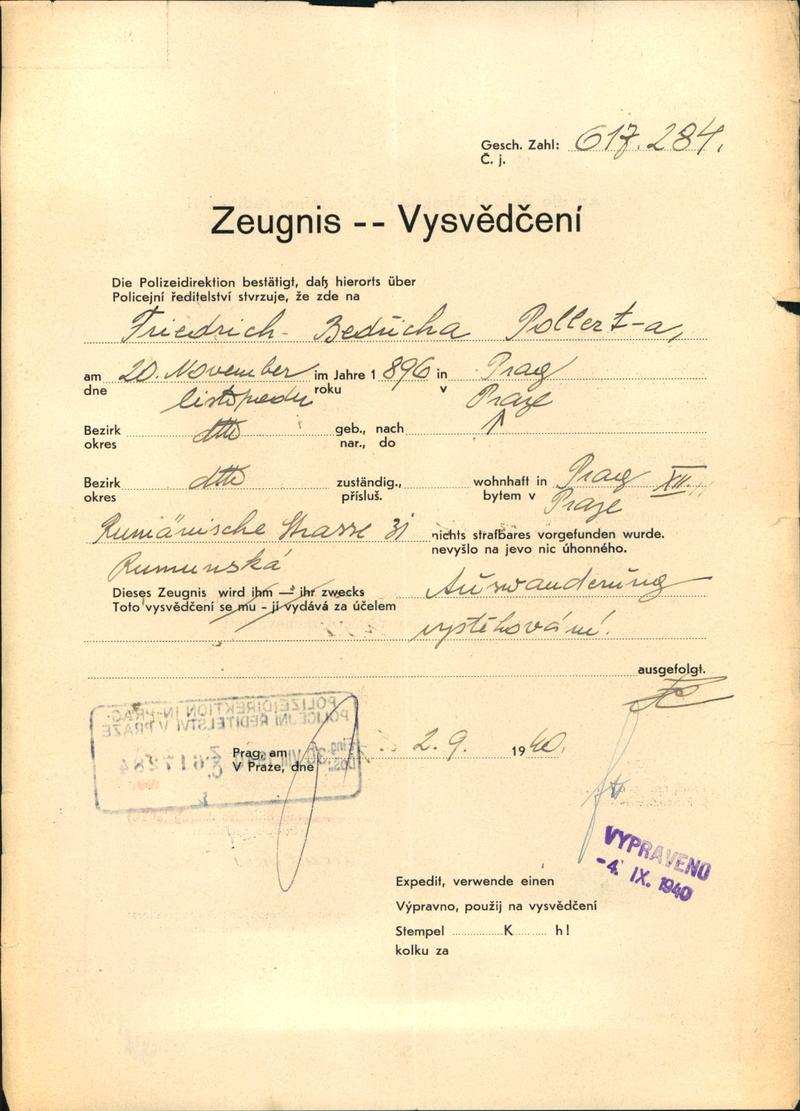 Gesch. Zahl: 617.284.
Č. j.
Zeugnis -- Vysvědčení
Die Polizeidirektion bestätigt, daß hierorts über
Policejní ředitelství stvrzuje, že zde na
Friedrich - Bedřicha Pollert-a,
am 20. November im Jahre 1896 in Prag
dne listopadu roku v Praze
Bezirk dtto geb., nach
okres nar., do
Bezirk dtto zuständig., wohnhaft in Prag XII.
okres přísluš. bytem v Praze
Rumänische Strasse 31 nichts strafbares vorgefunden wurde.
nevyšlo na jevo nic úhonného.
Rumunská
Dieses Zeugnis wird ihm — ihr zwecks Auswanderung
Toto vysvědčení se mu - jí vydává za účelem
vystěhování.
ausgefolgt.
POLIZEIDIREKTION IN PRAG
POLICEJNÍ ŘEDITELSTVÍ V PRAZE
Prag, am 2.9. 1940.
V Praze, dne
617284
VYPRAVENO
-4. IX. 1940
Expedit, verwende einen
Výpravno, použij na vysvědčení
Stempel K h!
kolku za